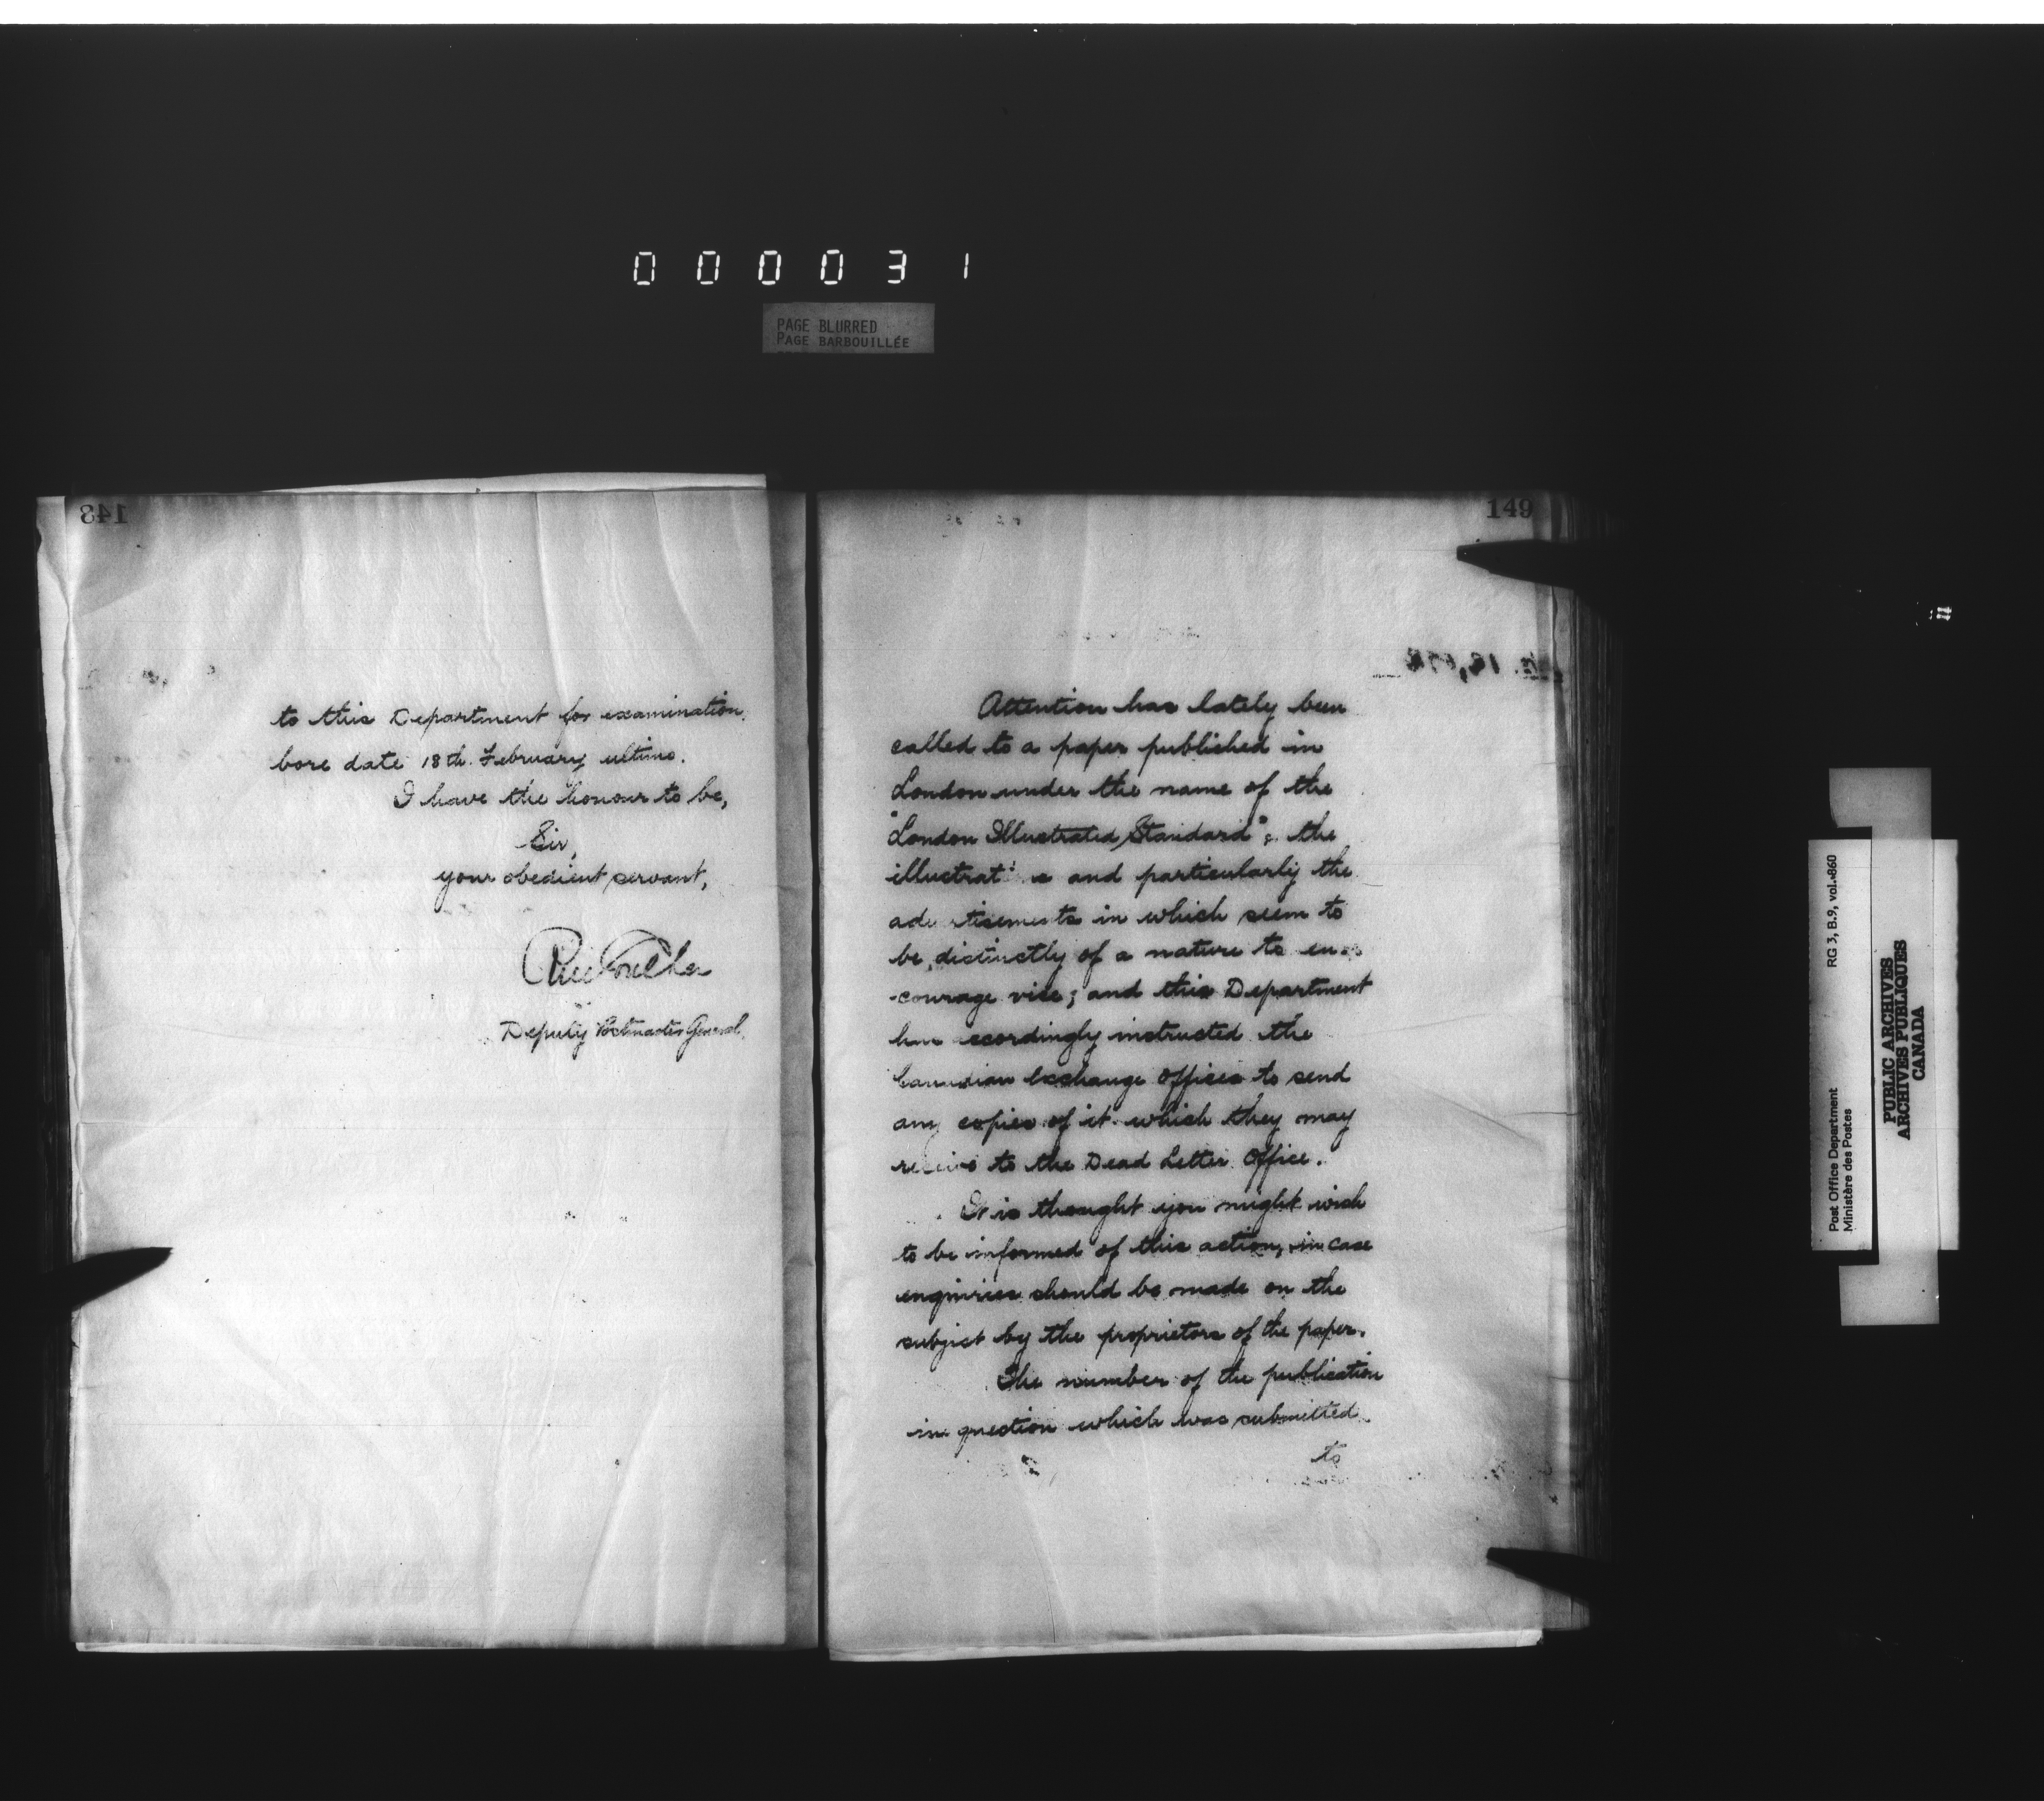 000031
PAGE BLURRED
PAGE BARBOUILLÉE
148
to this Department for examination,
bore date 18th. February ultimo.
I have the honour to be,
Sir,
your obedient servant,
Deputy Postmaster General.
149
Attention has lately been
called to a paper published in
London under the name of the
"London Illustrated Standard"; the
illustrat e and particularly the
adv rtisements in which seem to
be distinctly of a nature to en-
-courage vice; and this Department
has accordingly instructed the
Canadian Exchange Offices to send
any copies of it which they may
receive to the Dead Letter Office.
It is thought you might wish
to be informed of this action, in case
enquiries should be made on the
subject by the proprietors of the paper.
The number of the publication
in question which was submitted
to
Post Office Department
Ministère des Postes
RG 3, B.9, vol. 860
PUBLIC ARCHIVES
ARCHIVES PUBLIQUES
CANADA